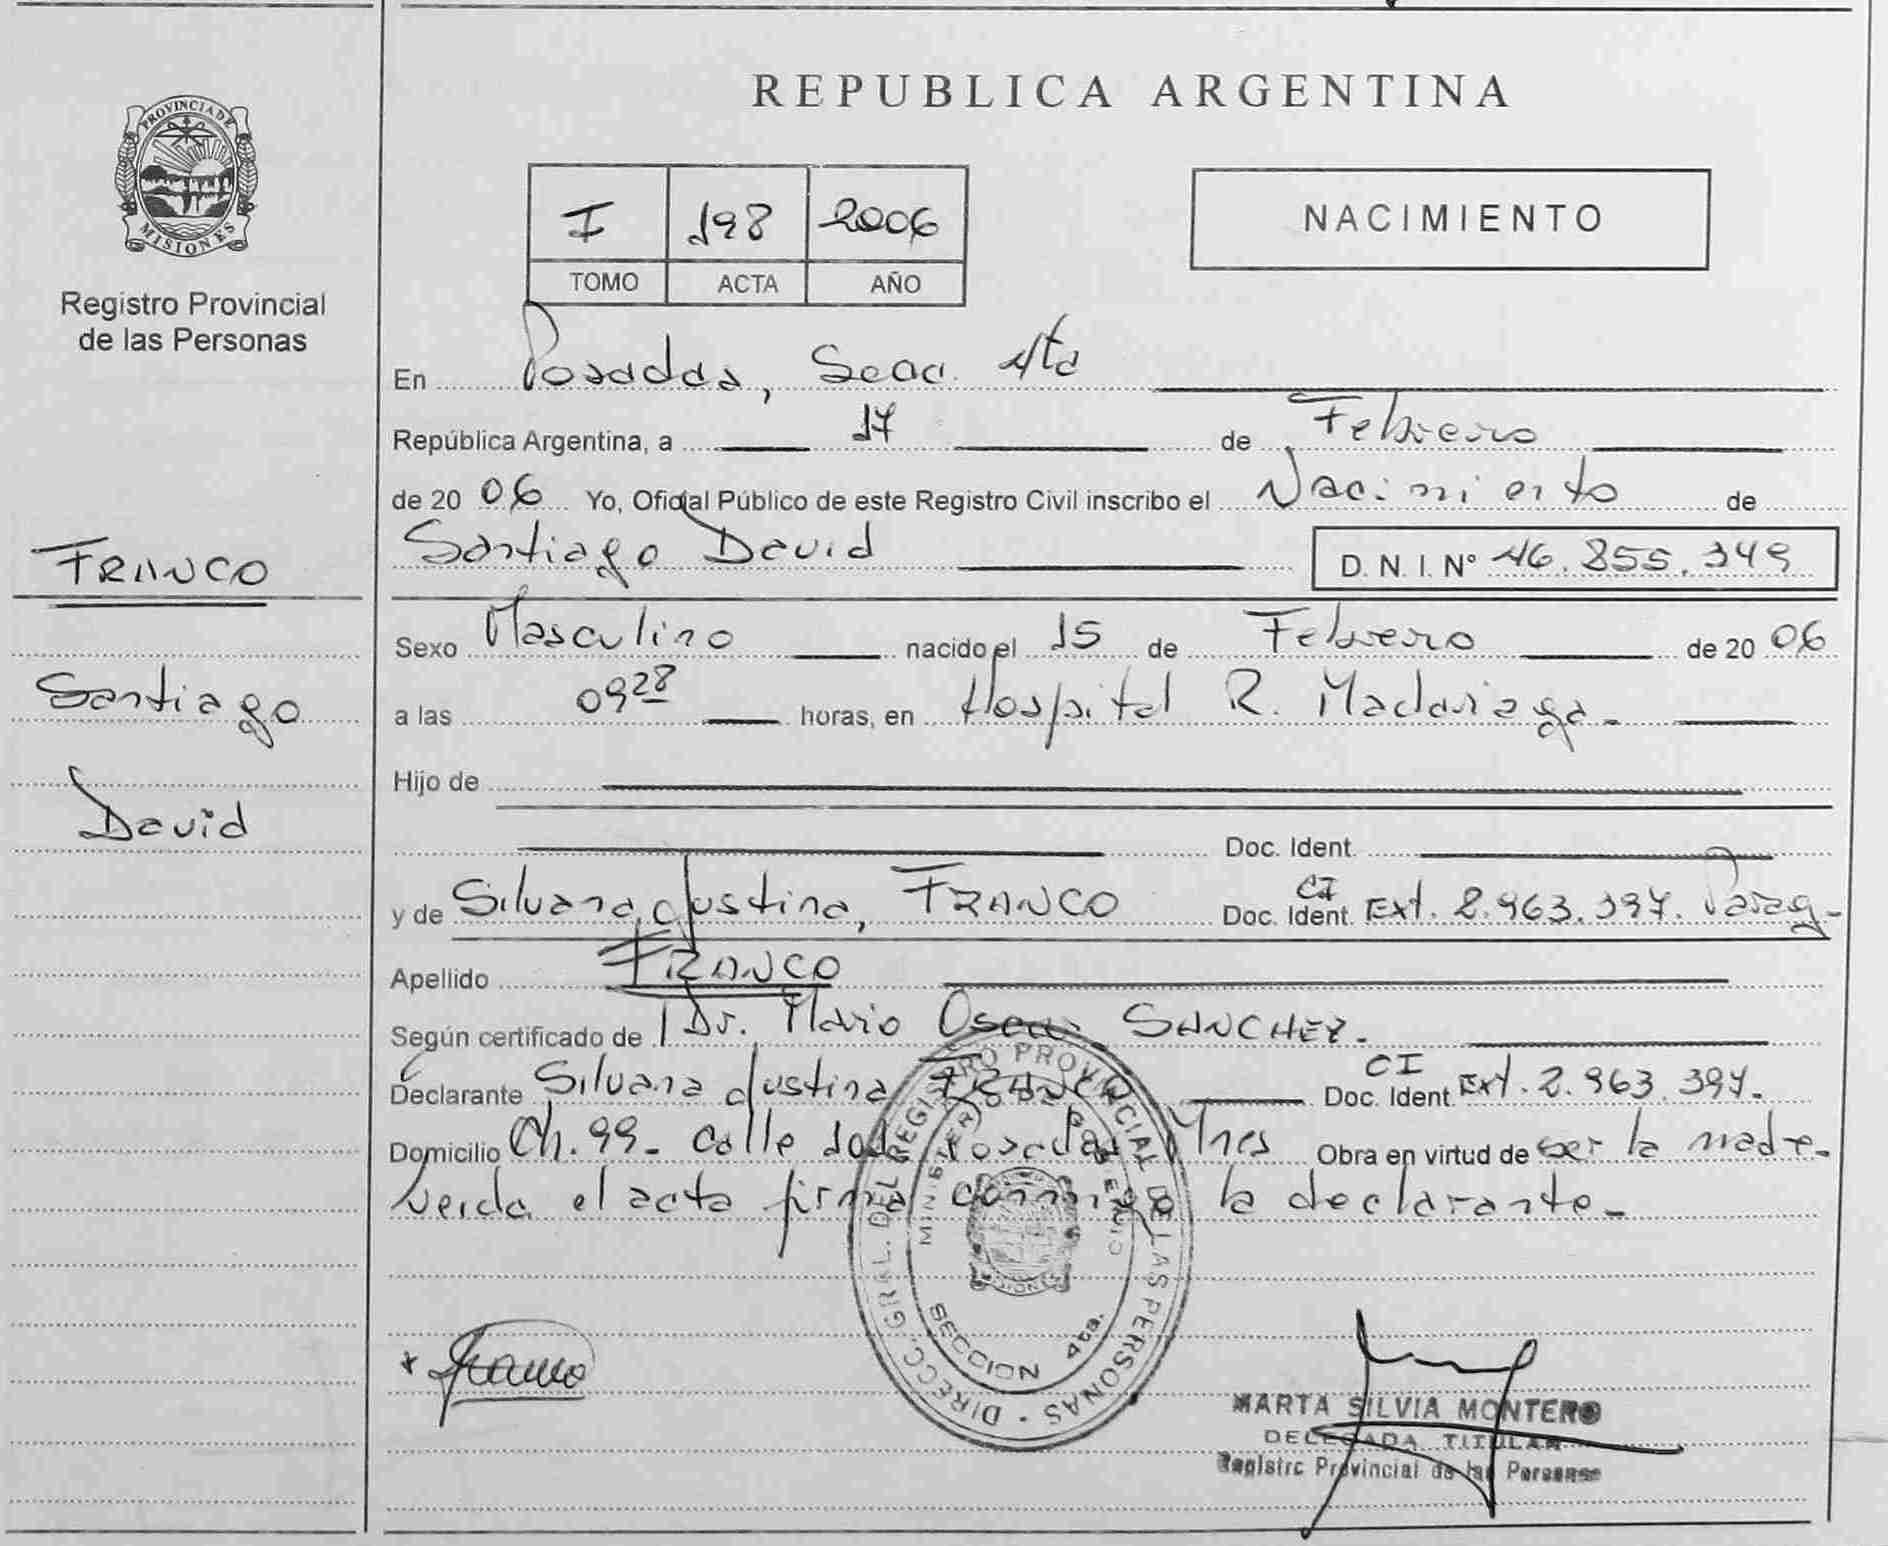 PROVINCIA DE
MISIONES
Registro Provincial
de las Personas
FRANCO
Santiago
David
REPUBLICA ARGENTINA
I 198 2006
TOMO ACTA AÑO
NACIMIENTO
En Posadas, Secc. 4ta
República Argentina, a 17 de Febrero
de 20 06 Yo, Oficial Público de este Registro Civil inscribo el Nacimiento de
Santiago David D. N. I. Nº 46.855.349
Sexo Masculino nacido el 15 de Febrero de 20 06
a las 09 28 horas, en Hospital R. Madariaga.
Hijo de
Doc. Ident.
y de Silvana Justina, FRANCO Doc. Ident. CI Ext. 2.963.397. Parag.
Apellido FRANCO
Según certificado de Dr. Mario Oscar SANCHEZ.
Declarante Silvana Justina FRANCO Doc. Ident. CI Ext. 2.963.397.
Domicilio Ch. 99- calle Posadas Mnes Obra en virtud de ser la madre-
Leida el acta firma conmigo la declarante-
DIRECC. GRAL. DEL REGISTRO PROVINCIAL DE LAS PERSONAS
MINISTERIO GOBIERNO
MISIONES
SECCION 4ta.
Franco
MARTA SILVIA MONTERO
DELEGADA TITULAR
Registro Provincial de las Personas